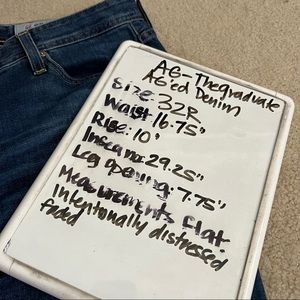 AG-Thegraduate
AG'ed Denim
Size: 32R
Waist 16.75"
Rise: 10"
Inseam: 29.25"
Leg opening: 7.75"
Measurements flat.
Intentionally distressed
faded